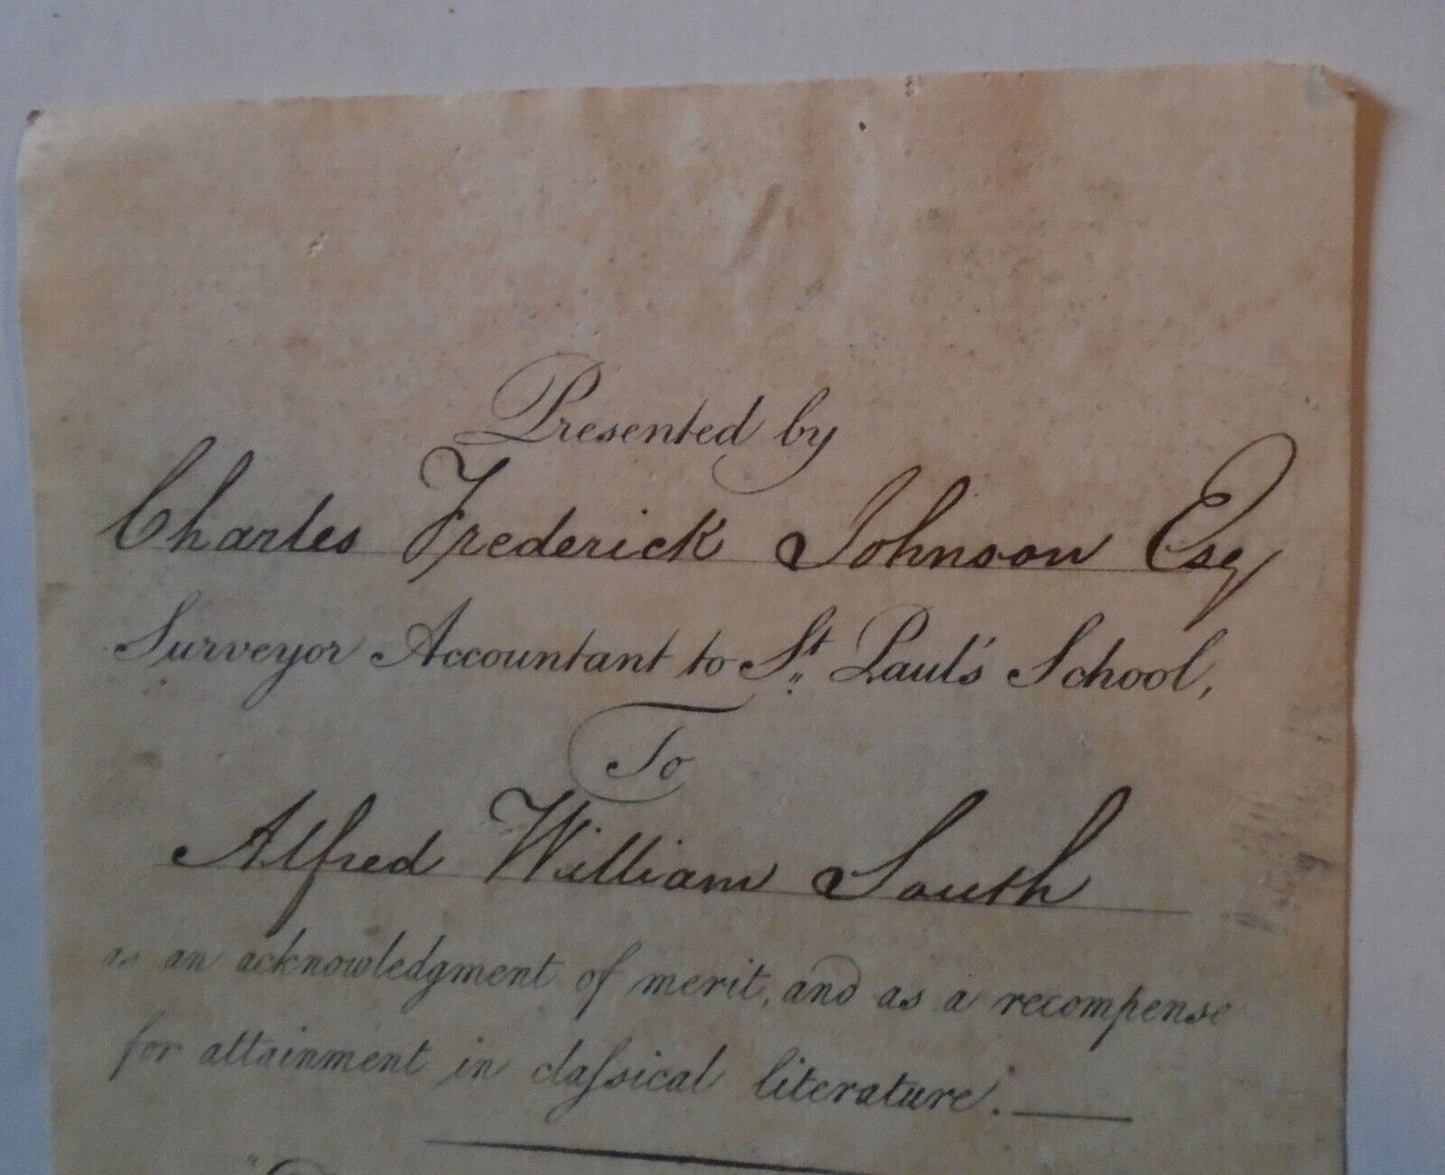 Presented by
Charles Frederick Johnson Esq
Surveyor Accountant to St. Paul's School,
To
Alfred William South
as an acknowledgment of merit, and as a recompense
for attainment in claſsical literature.